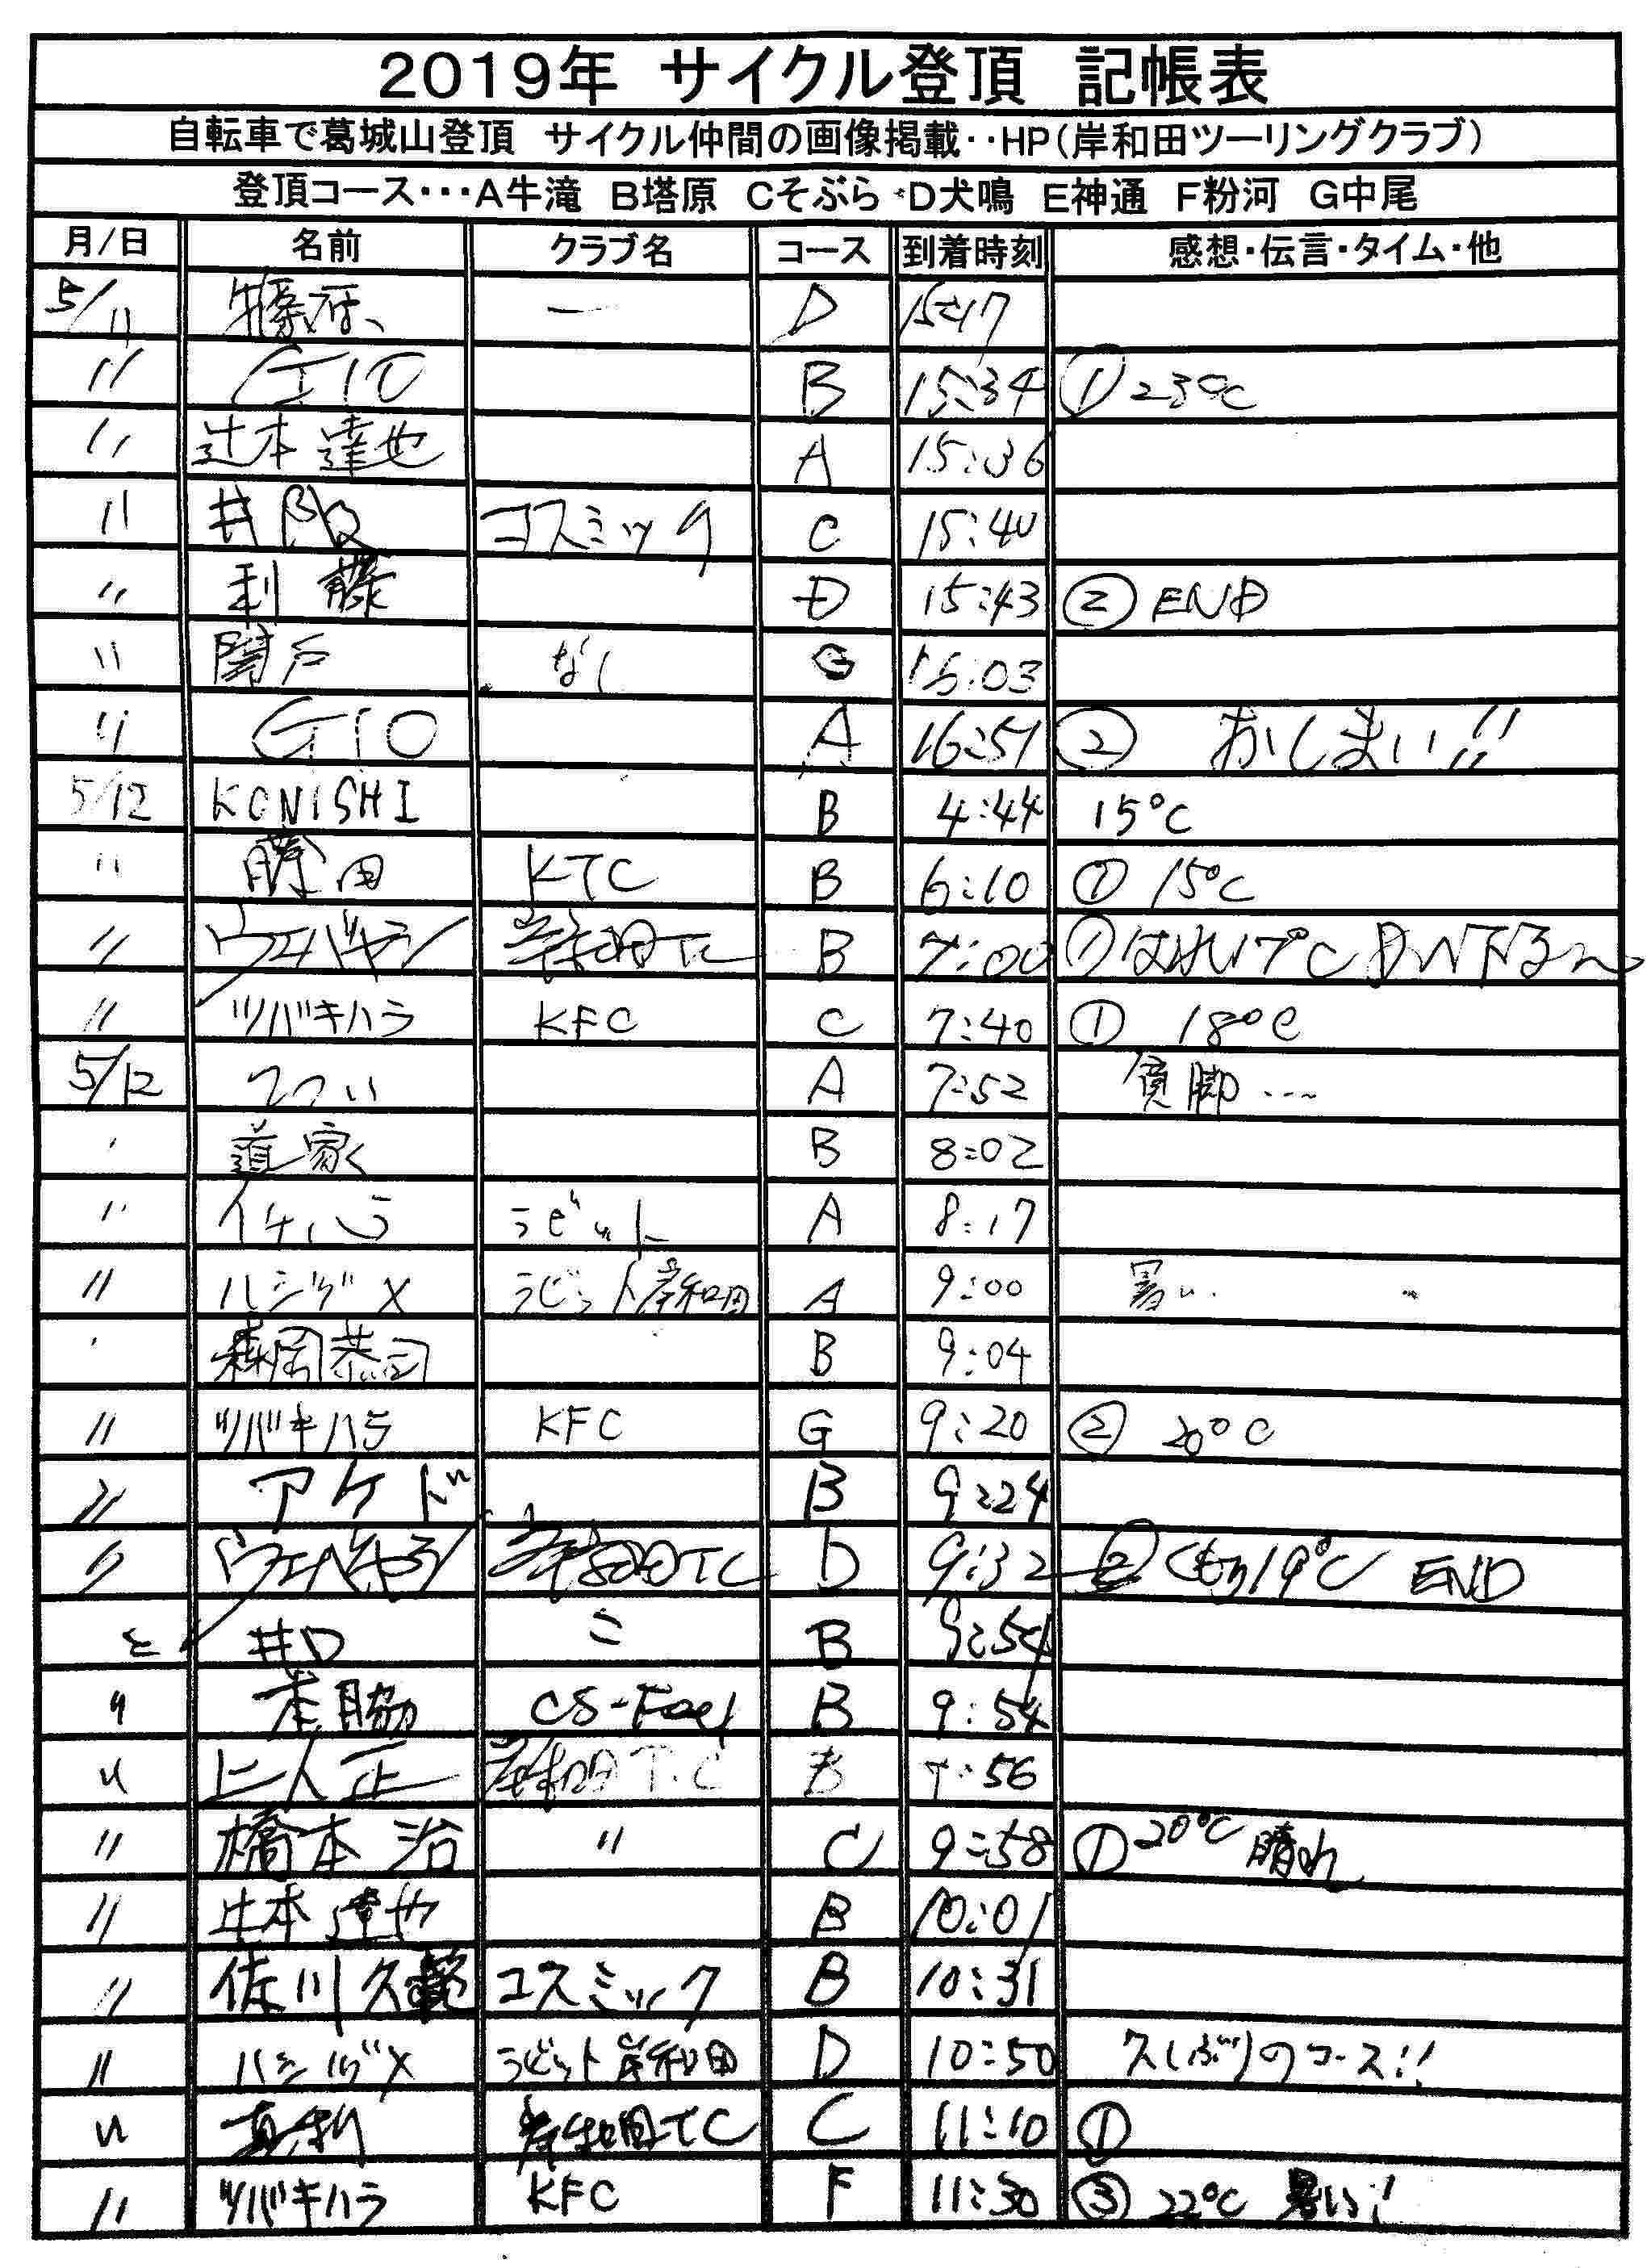 2019年 サイクル登頂 記帳表
自転車で葛城山登頂 サイクル仲間の画像掲載‥HP(岸和田ツーリングクラブ)
登頂コース・・・A牛滝 B塔原 Cそぶら D犬鳴 E神通 F粉河 G中尾
月/日 名前 クラブ名 コース 到着時刻 感想・伝言・タイム・他
5/11 藤原 ー D 15:17
〃 GIO B 15:34 ① 23℃
〃 辻本達也 A 15:36
〃 井阪 コスミック C 15:40
〃 利藤 D 15:43 ② END
〃 関戸 なし G 16:03
〃 GIO A 16:51 ② おしまい!!
5/12 KONISHI B 4:44 15℃
〃 藤田 KTC B 6:10 ① 15℃
〃 ウエバヤシ 岸和田TC B 7:00 ① はれ 17℃ Dへ下る〜
〃 ツバキハラ KFC C 7:40 ① 18℃
5/12 つつい A 7:52 貧脚…
〃 道家 B 8:02
〃 イチハラ ラビット A 8:17
〃 ハシヅメ ラビット岸和田 A 9:00 暑い
〃 森岡恭司 B 9:04
〃 ツバキハラ KFC G 9:20 ② 20℃
〃 アケド B 9:24
〃 ウエバヤシ 岸和田TC D 9:32 ② くもり 19℃ END
〃 井口 〃 B 9:54
〃 CS-Feel B 9:54
〃 上人正 岸和田T.C B 9:56
〃 橋本治 〃 C 9:58 ① 20℃ 晴れ
〃 辻本達也 B 10:01
〃 佐川久 コスミック B 10:31
〃 ハシヅメ ラビット岸和田 D 10:50 久しぶりのコース!!
〃 真利 岸和田TC C 11:10 ①
〃 ツバキハラ KFC F 11:30 ③ 22℃ 暑い!